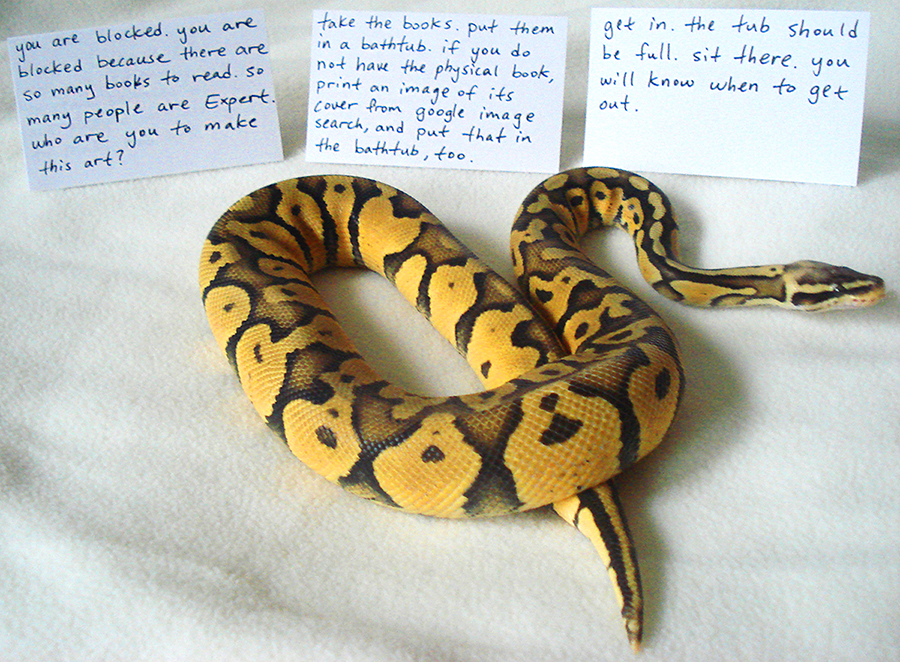 you are blocked. you are
blocked because there are
so many books to read. so
many people are Expert.
who are you to make
this art?
take the books. put them
in a bathtub. if you do
not have the physical book,
print an image of its
cover from google image
search, and put that in
the bathtub, too.
get in. the tub should
be full. sit there. you
will know when to get
out.